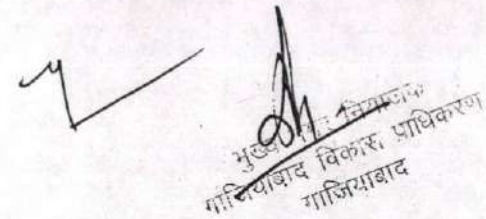 मुख्य नगर नियोजक
गाजियाबाद विकास प्राधिकरण
गाजियाबाद